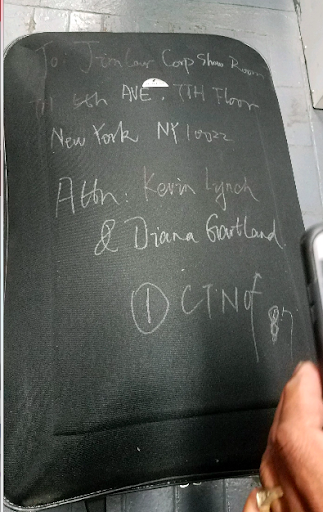 To: Jimlar Corp Show Room
711 5th AVE. 7TH Floor
New York NY 10022
Attn: Kevin Lynch
& Diana Gartland
① CTN of 8